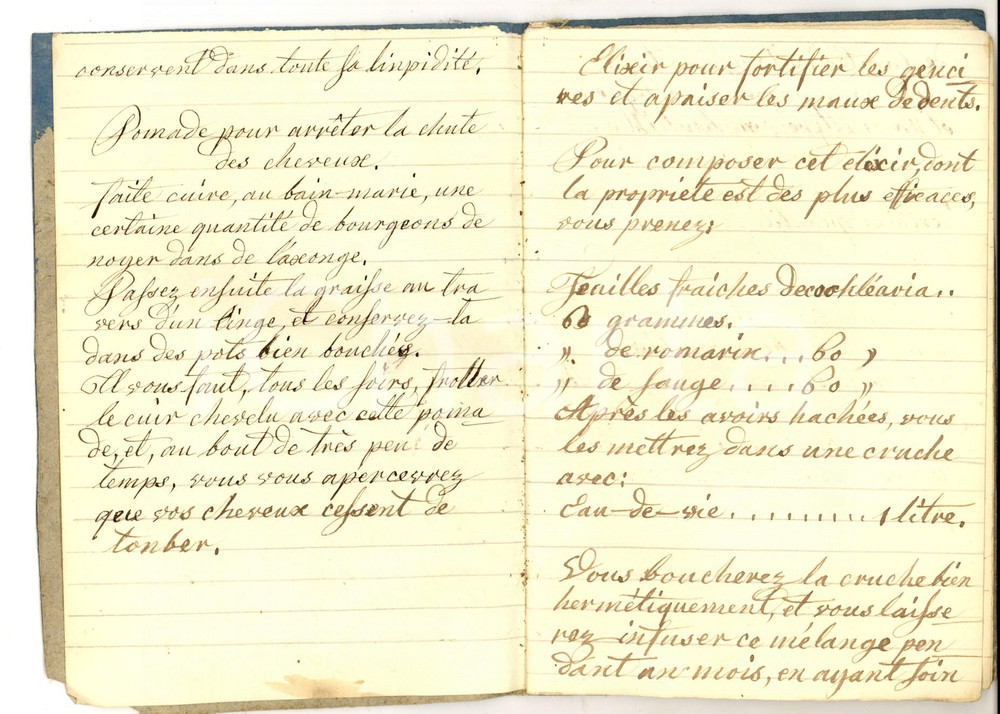 conservent dans toute sa linpidité.
Pomade pour arrêter la chute
des cheveux.
faite cuire, au bain-marie, une
certaine quantité de bourgeons de
noyer dans de l'axonge.
Passez ensuite la graisse au tra
vers d'un linge, et conservez-la
dans des pots bien bouchés.
Il vous faut, tous les soirs, frotter
le cuir chevelu avec cette poma
de, et, au bout de très peu de
temps, vous vous apercevrez
que vos cheveux cessent de
tonber.
Elixir pour fortifier les genci
ves et apaiser les maux de dents.
Pour composer cet élixir, dont
la propriété est des plus efficaces,
vous prenez:
Feuilles fraiches de cochléaria..
60 grammes.
". de romarin....60 "
" de sauge.....60 "
Après les avoirs hachées, vous
les mettrez dans une cruche
avec:
Eau-de-vie.........1 litre.
Vous boucherez la cruche bien
hermétiquement, et vous laisse
rez infuser ce mélange pen
dant un mois, en ayant soin